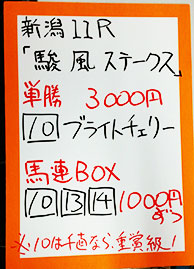 新潟11R
「駿風ステークス」
単勝 3000円
10 ブライトチェリー
馬連BOX
10 13 14 1000円ずつ
※10は千直なら、重賞級!